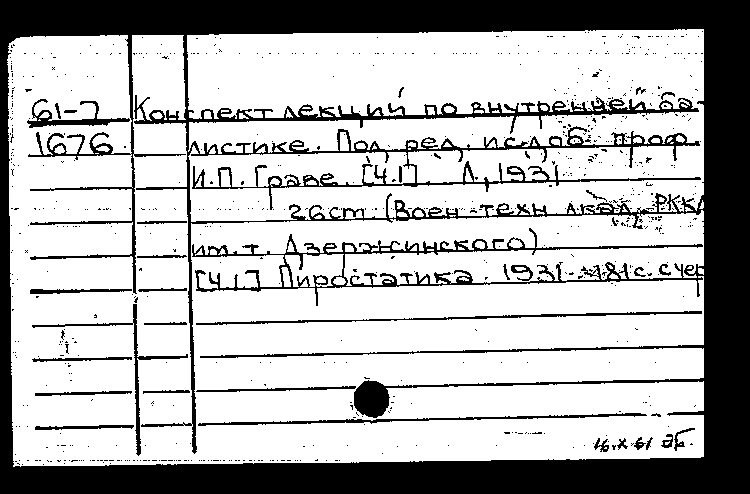 61-7 Конспект лекций по внутренней ба-
1676 листике. Под ред. и с доб. проф.
И.П. Граве. [Ч.1]. Л., 1931
26 ст. (Воен-техн акад. РККА
им. т. Дзержинского)
[Ч.1] Пиростатика. 1931. 181 с. с чер
16.X 61